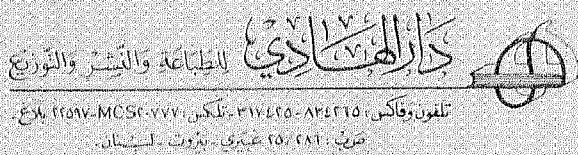 دَارُ الهَادِي لِلطِّبَاعَةِ وَالنَّشِرِ وَالتَّوزيع
تلفون وفاكس: ٨٣٤٢٦٥ - ٣١٧٤٢٥ - تلكس: MCS٢٠٧٧٧ - ٢٢٥٩٧ بلاغ -
ص.ب: ٢٥/٢٨٦ غبيري - بيروت - لبنان.